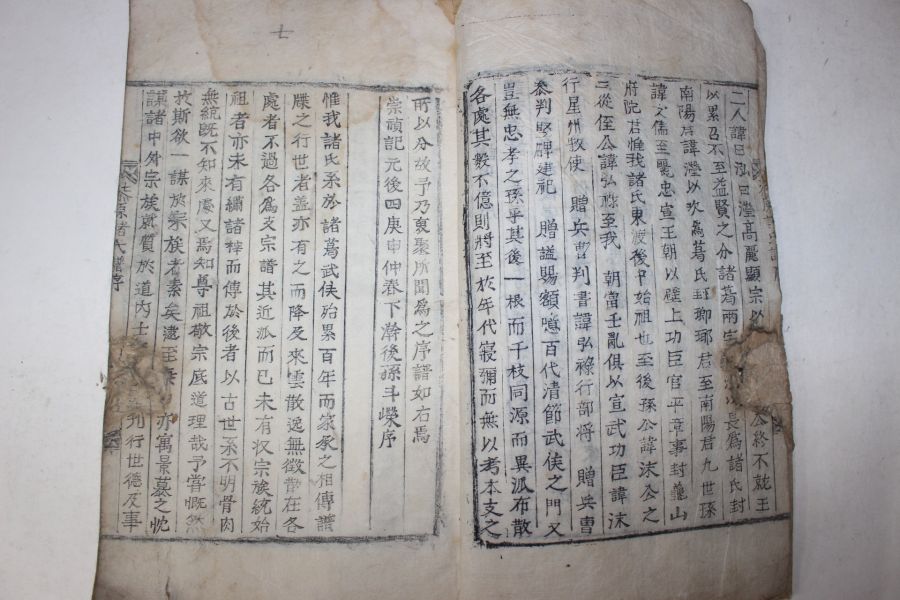 二人諱曰泓曰瀅高麗顯宗以 公終不就王
以累召不至益賢之分諸葛兩字 以長爲諸氏封
南陽君諱瀅以次爲葛氏封瑯琊君至南陽君九世孫
諱文儒至忠宣王朝以壁上功臣官平章事封 山
府院君惟我諸氏東渡後中始祖也至後孫公諱沫公之
三從侄公諱弘祿至我 朝當壬亂俱以宣武功臣諱沫
行星州牧使 贈兵曹判書諱弘祿行部將 贈兵曹
參判竪碑建祀 贈謚賜額噫百代清節武侯之門又
豈無忠孝之孫乎其後一根而千枝同源而異派布散
各處其麗不億則將至於年代寢彌而無以考本支之
所以分故予乃裒聚所聞爲之序譜如右焉
崇禎記元後四庚申仲春下澣後孫斗燦序
惟我諸氏系於諸葛武侯殆累百年而家承之相傳譜
牒之行世者盖亦有之而降及來雲散逸無徵散在各
處者不過各爲支宗譜其近派而已未有収宗族統始
祖者亦未有繡諸梓而傳於後者以古世系不明骨肉
無統旣不知來處又焉知尊祖敬宗底道理哉予嘗慨然
於斯欲一謀於宗族者素矣逮至 亦寓景慕之忱
謀諸中外宗族就質於道內士 刊行世德及事
七